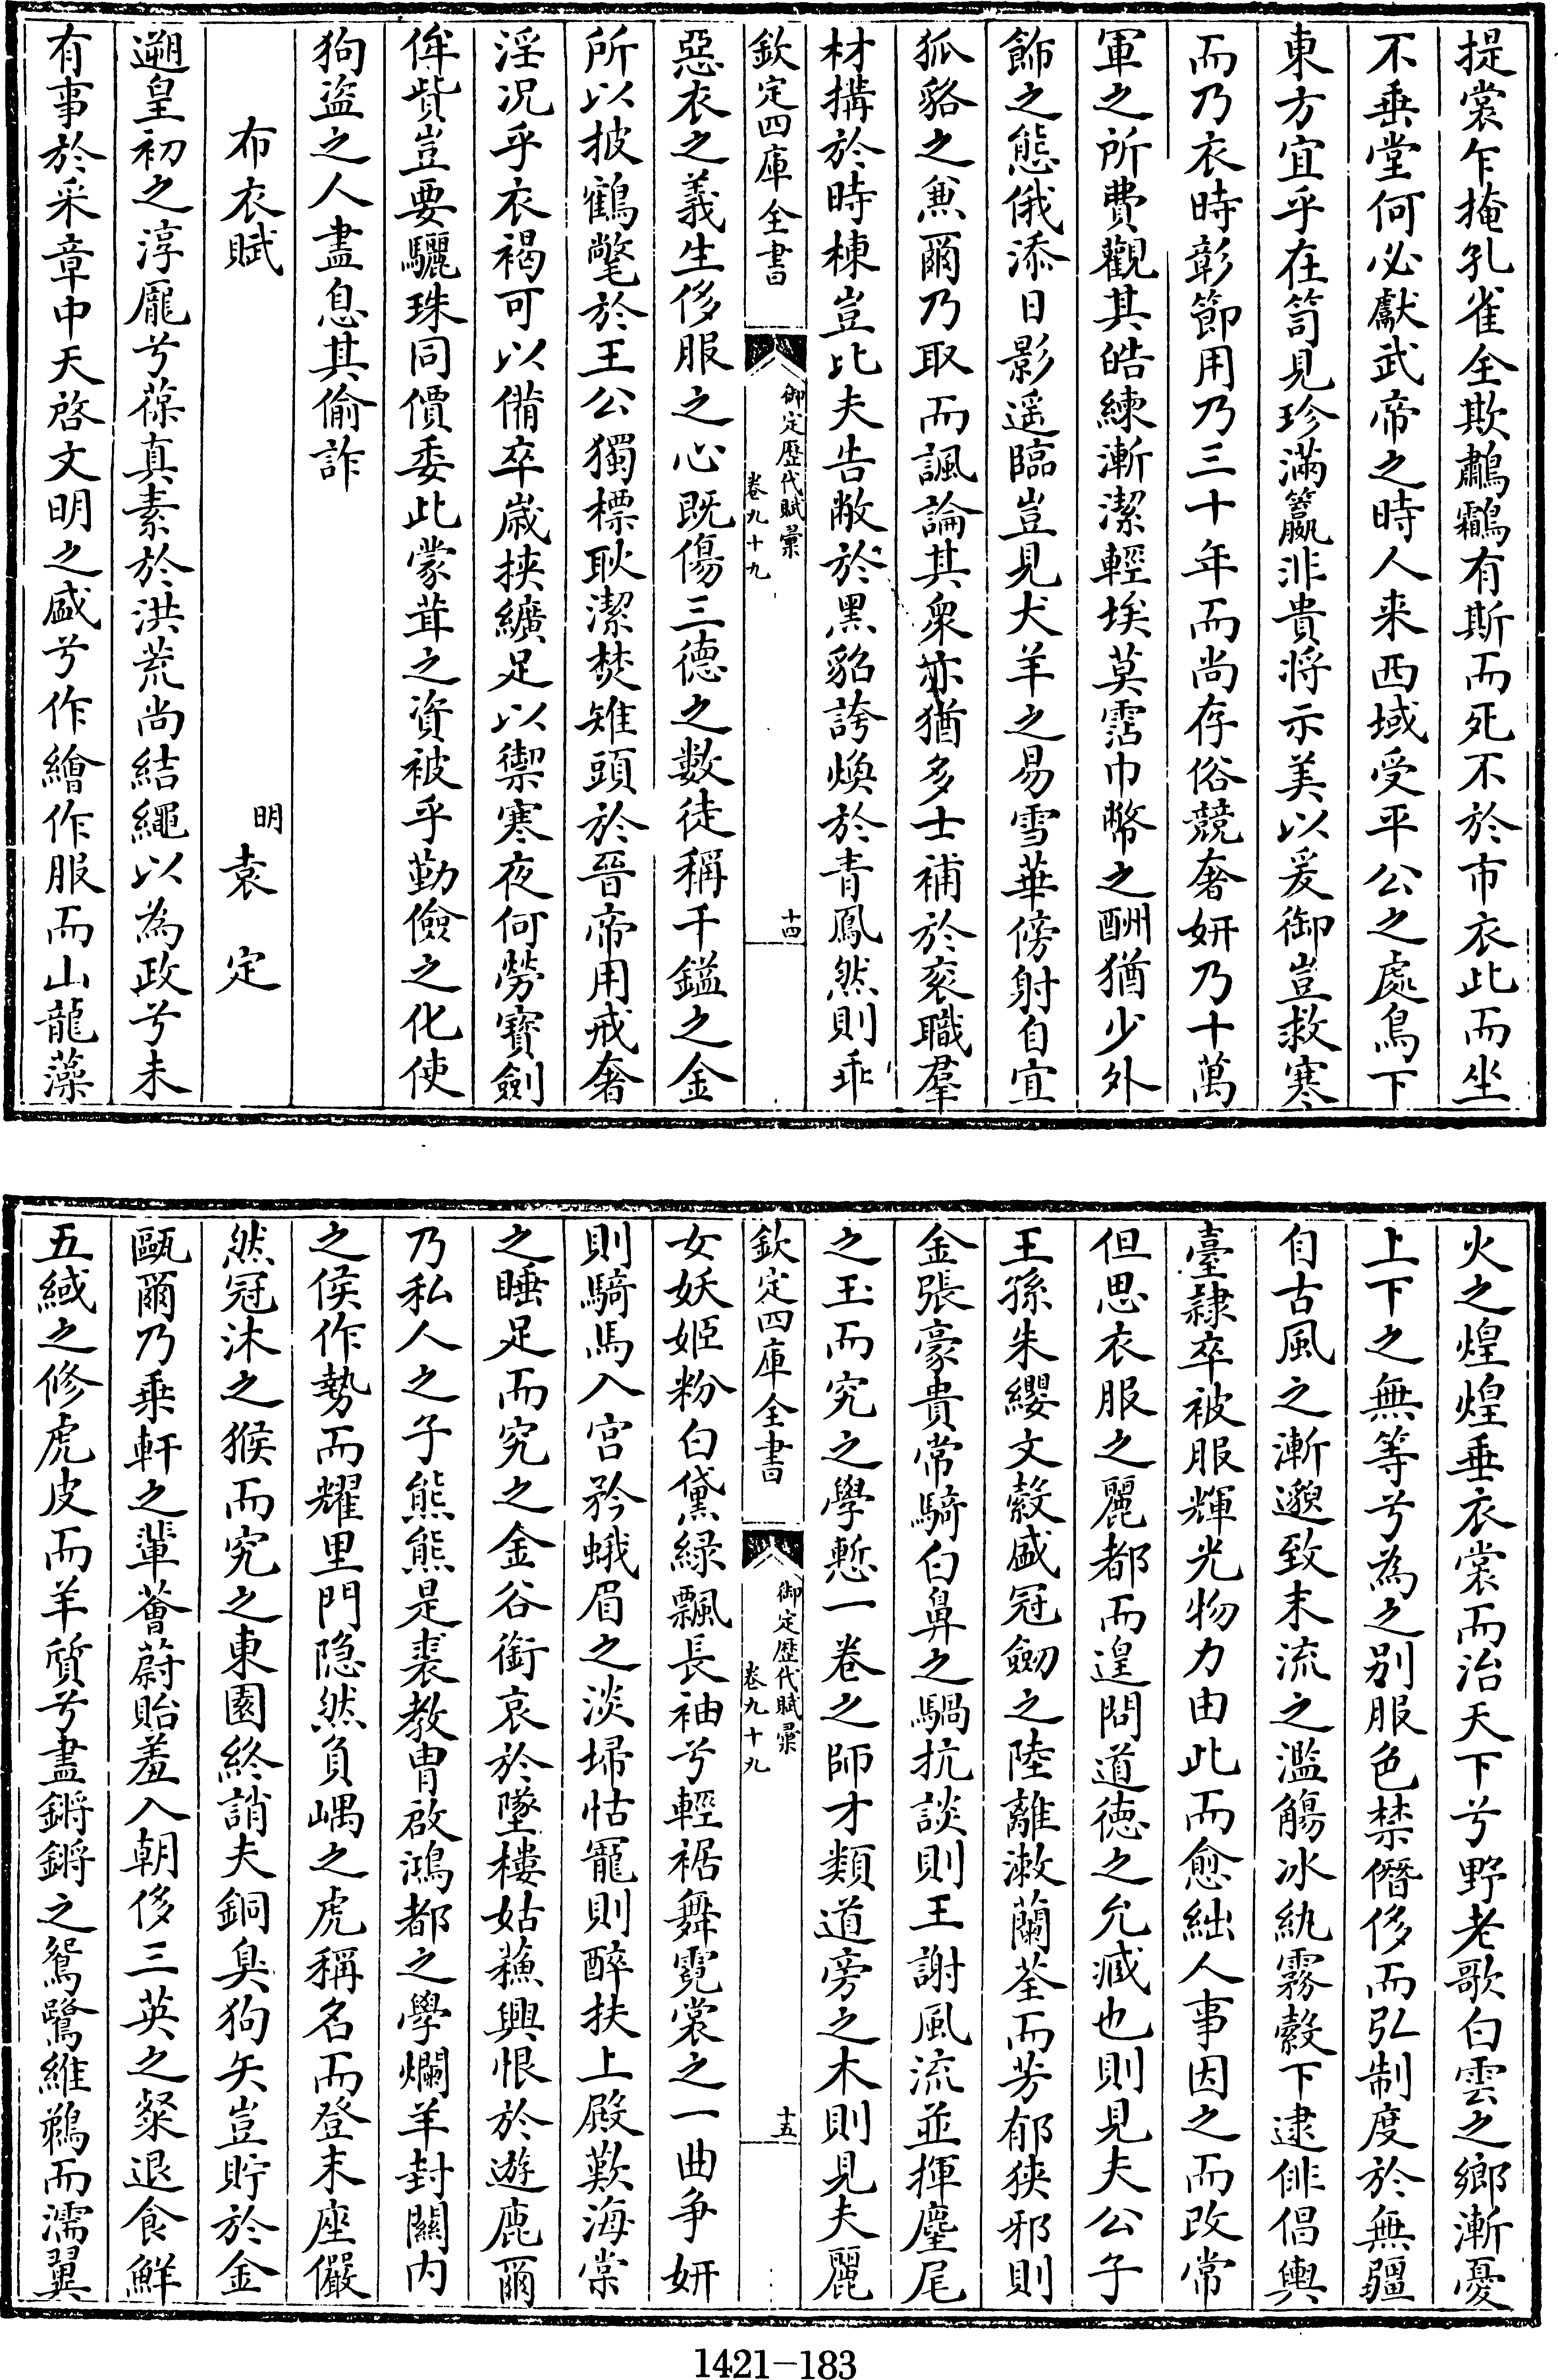 提裳乍掩孔雀全欺鷫鸘有斯而死不於市衣此而坐
不垂堂何必獻武帝之時人来西域受平公之處鳥下
東方宜乎在笥見珍滿籯非貴將示美以爰御豈救寒
而乃衣時彰節用乃三十年而尚存俗競奢妍乃十萬
軍之所費觀其皓練漸潔輕埃莫霑巾幣之酬猶少外
飾之態俄添日影遥臨豈見犬羊之易雪華傍射自宜
狐貉之兼爾乃取而諷論其衆亦猶多士補於衮職羣
材搆於時棟豈比夫告敝於黑貂誇煥於青鳳然則乖
欽定四庫全書
御定歷代賦彙
卷九十九
十四
惡衣之義生侈服之心既傷三德之數徒稱千鎰之金
所以披鶴氅於王公獨標耿潔焚雉頭於晉帝用戒奢
淫况乎衣褐可以備卒歲挾纊足以禦寒夜何勞寶劍
侔貲豈要驪珠同價委此蒙茸之資被乎勤儉之化使
狗盜之人盡息其偷詐
布衣賦
明袁定
遡皇初之淳龎兮葆真素於洪荒尚結繩以為政兮未
有事於采章中天啓文明之盛兮作繪作服而山龍藻
火之煌煌垂衣裳而治天下兮野老歌白雲之鄉漸憂
上下之無等兮為之别服色禁僭侈而弘制度於無疆
自古風之漸邈致末流之濫觴冰紈霧縠下逮俳倡輿
臺隷卒被服輝光物力由此而愈絀人事因之而改常
但思衣服之麗都而遑問道德之允臧也則見夫公子
王孫朱纓文縠盛冠劒之陸離漱蘭荃而芳郁狹邪則
金張豪貴常騎白鼻之騧抗談則王謝風流並揮麈尾
之玉而究之學慙一卷之師才類道旁之木則見夫麗
欽定四庫全書
御定歷代賦彙
卷九十九
十五
女妖姬粉白黛緑飄長袖兮輕裾舞霓裳之一曲争妍
則騎馬入宫矜蛾眉之淡埽怙寵則醉扶上殿歎海棠
之睡足而究之金谷銜哀於墜樓姑蘓興恨於遊鹿爾
乃私人之子熊熊是裘教胄啟鴻都之學爛羊封關内
之侯作勢而耀里門隐然負嵎之虎稱名而登末座儼
然冠沐之猴而究之東園終誚夫銅臭狗矢豈貯於金
甌爾乃乘軒之輩薈蔚貽羞入朝侈三英之粲退食鮮
五緎之修虎皮而羊質兮盡鏘鏘之鴛鷺維鵜而濡翼
1421-183